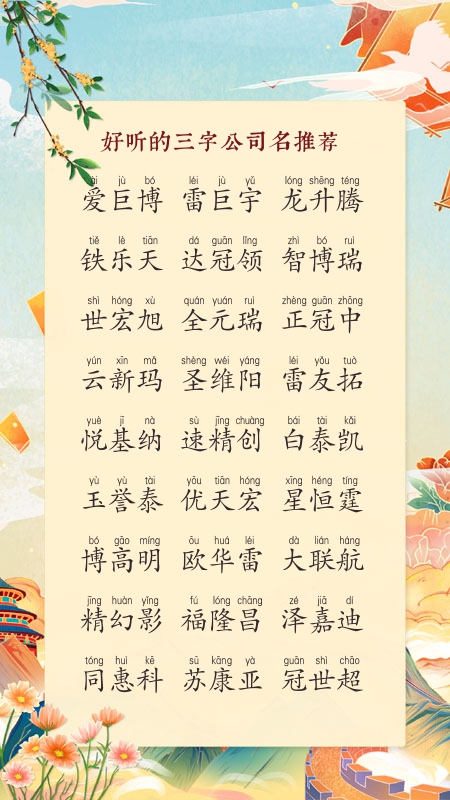 好听的三字公司名推荐
ài jù bó léi jù yǔ lóng shēng téng
爱巨博 雷巨宇 龙升腾
tiě lè tiān dá guān lǐng zhì bó ruì
铁乐天 达冠领 智博瑞
shì hóng xù quán yuán ruì zhèng guān zhōng
世宏旭 全元瑞 正冠中
yún xīn mǎ shèng wéi yáng léi yǒu tuò
云新玛 圣维阳 雷友拓
yuè jī nà sù jīng chuàng bái tài kǎi
悦基纳 速精创 白泰凯
yù yù tài yōu tiān hóng xīng héng tíng
玉誉泰 优天宏 星恒霆
bó gāo míng ōu huá léi dà lián háng
博高明 欧华雷 大联航
jīng huàn yǐng fú lóng chāng zé jiā dí
精幻影 福隆昌 泽嘉迪
tóng huì kē sū kāng yà guān shì chāo
同惠科 苏康亚 冠世超